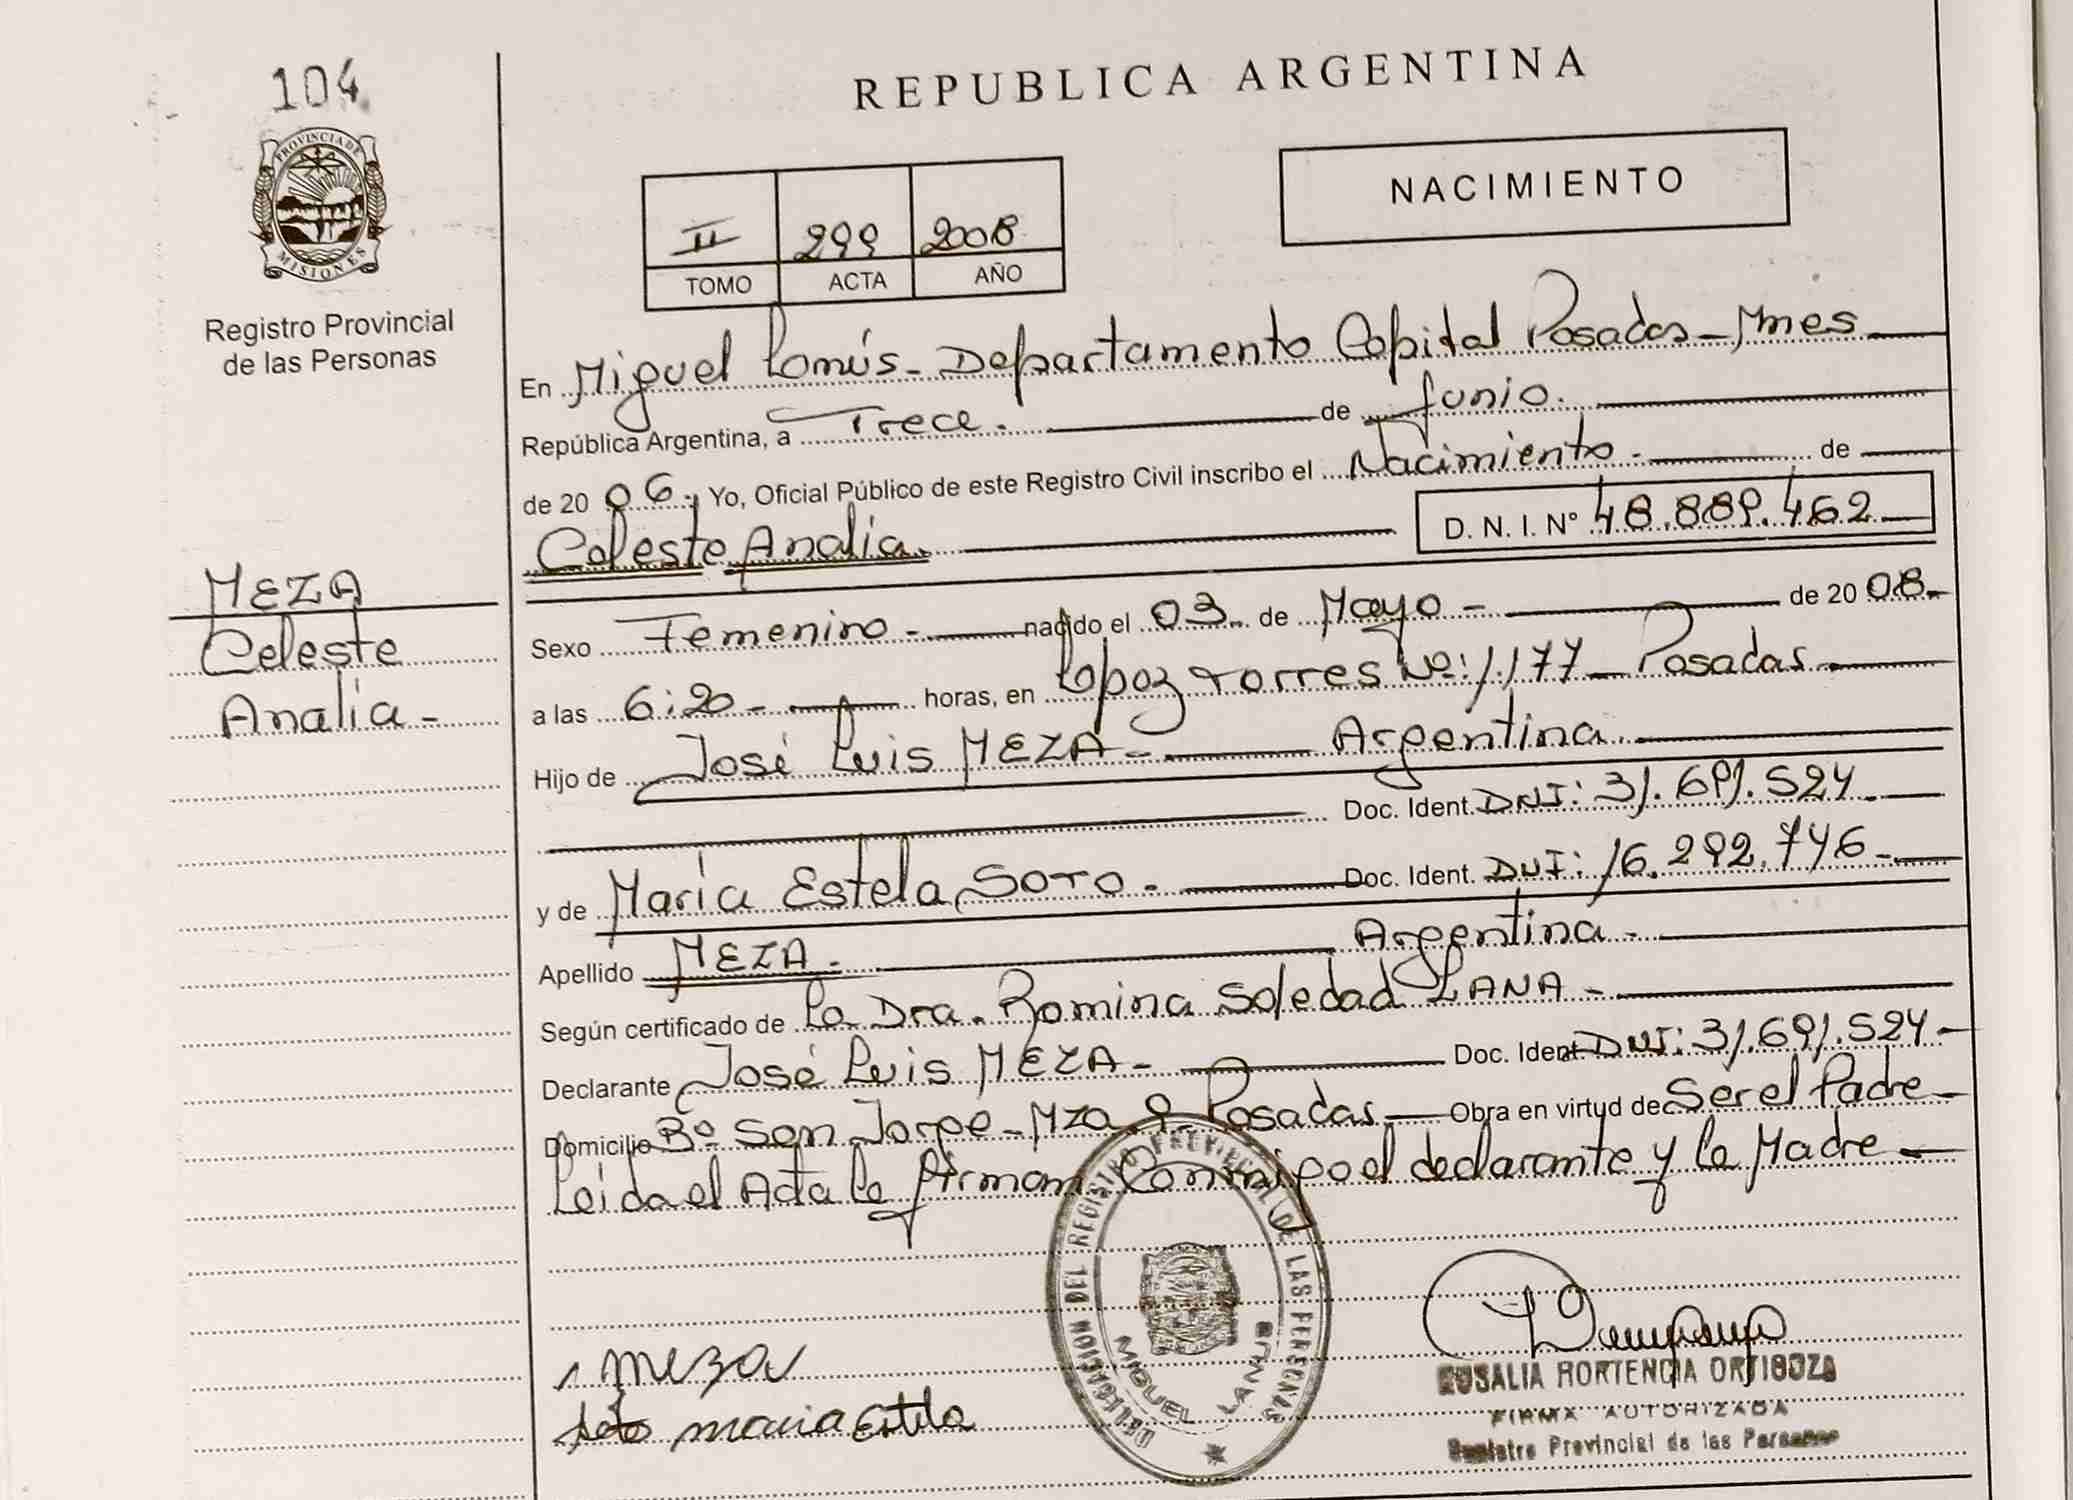 104
PROVINCIA DE
MISIONES
Registro Provincial
de las Personas
MEZA
Celeste
Analía -
REPUBLICA ARGENTINA
NACIMIENTO
II 299 2008
TOMO ACTA AÑO
En Miguel Lanús - Departamento Capital Posadas - Mnes
República Argentina, a Trece. de Junio.
de 20 06, Yo, Oficial Público de este Registro Civil inscribo el Nacimiento. de
Celeste Analía. D. N. I. Nº 48.889.462
Sexo Femenino - nacido el 03 de Mayo - de 20 08.
a las 6:20 - horas, en López Torres Nº: 1.177 - Posadas
Hijo de José Luis MEZA - Argentina.
Doc. Ident. DNI: 31.691.524.
y de María Estela SOTO. Doc. Ident. DNI: 16.292.746 -
Apellido MEZA. Argentina -
Según certificado de La Dra. Romina Soledad LANA -
Declarante José Luis MEZA - Doc. Ident. DNI: 31.691.524 -
Domicilio Bº San Jorge - Mza 9 - Posadas - Obra en virtud de Ser el Padre -
Leida el Acta la firman Conmigo el declarante y la Madre -
DELEGACION DEL REGISTRO PROVINCIAL DE LAS PERSONAS
MIGUEL LANUS
meza
soto maria estela
ROSALIA HORTENCIA ORTIGOZA
FIRMA AUTORIZADA
Registro Provincial de las Personas